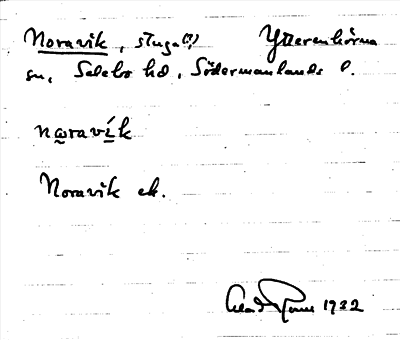 Noravik, stuga(?) Ytterenhörna
sn, Selebo hd, Södermanlands l.
nω̲raví̲k
Noravik ek.
1932